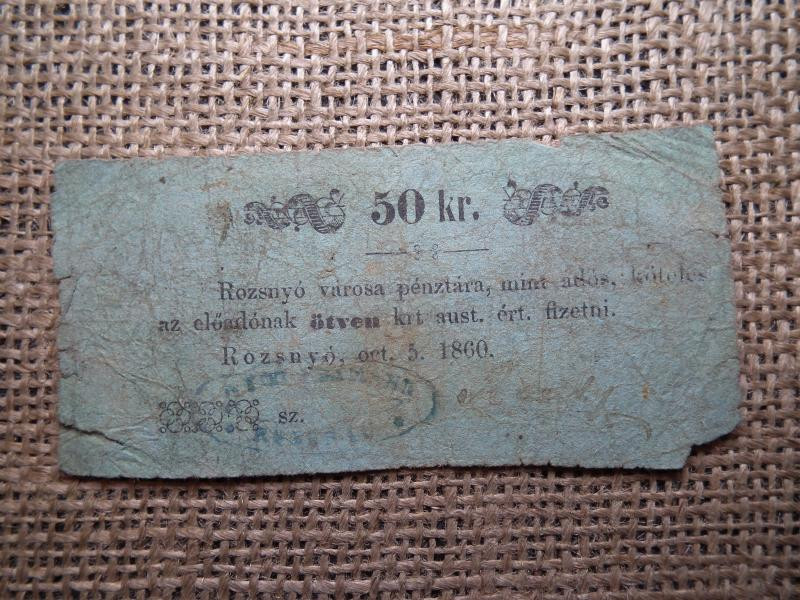 50 kr.
Rozsnyó városa pénztára, mint adós, köteles
az előadónak ötven krt aust. ért. fizetni.
Rozsnyó, oct. 5. 1860.
sz.